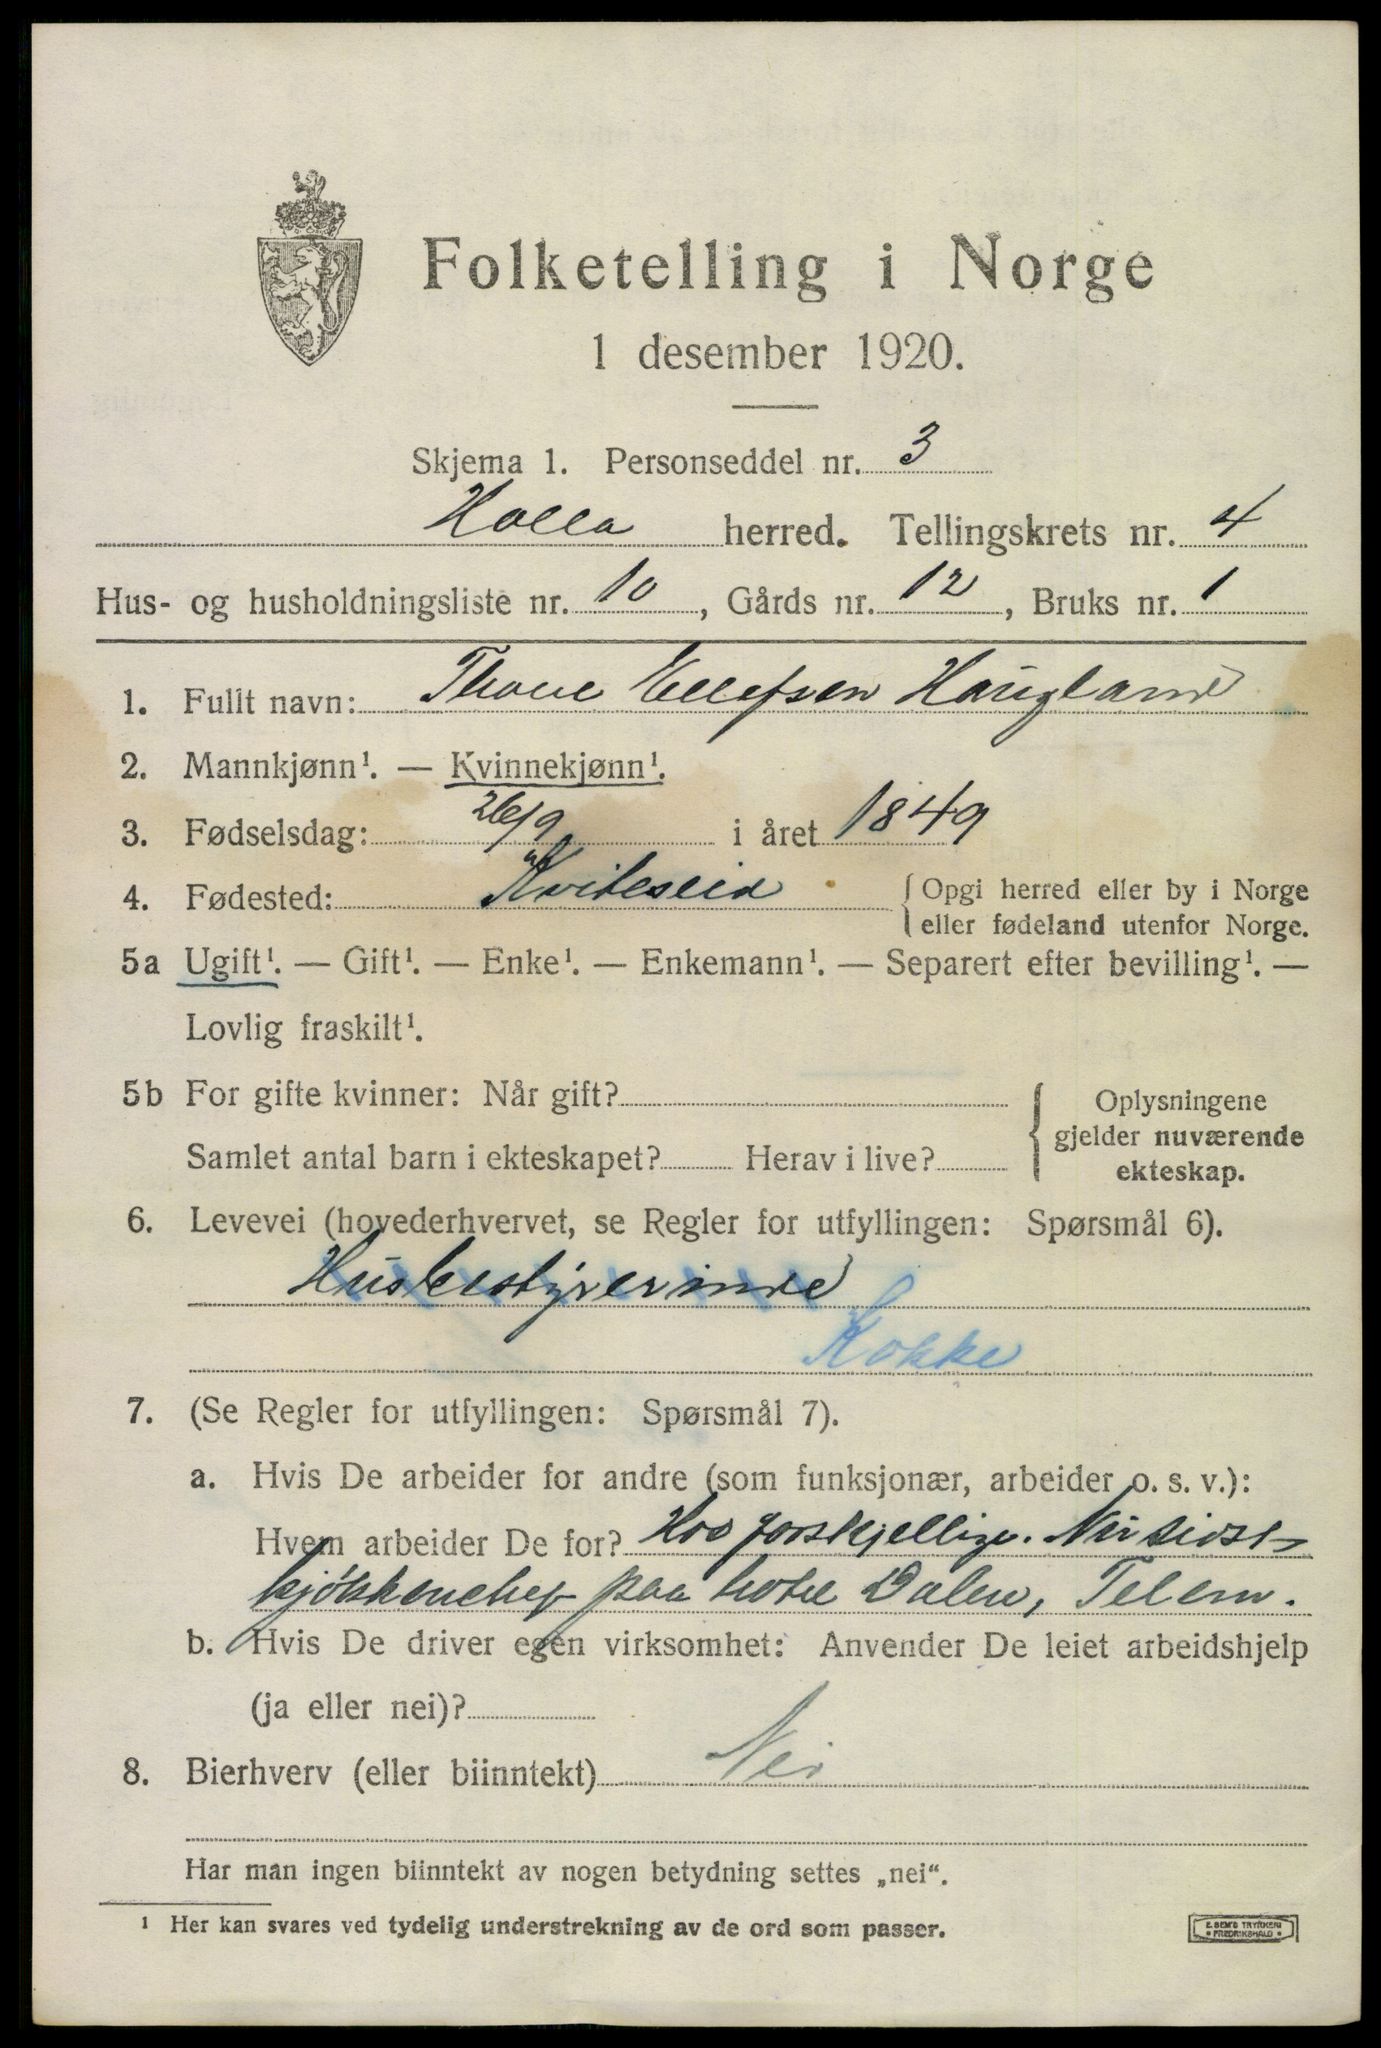 Folketelling i Norge
1 desember 1920.
Skjema 1. Personseddel nr. 3
Holla herred. Tellingskrets nr. 4
Hus- og husholdningsliste nr. 10, Gårds nr. 12, Bruks nr. 1
1. Fullt navn: Thone Ellefsen Haugland
2. Mannkjønn¹. — Kvinnekjønn¹.
3. Fødselsdag: 26/9 i året 1849
4. Fødested: Kviteseid { Opgi herred eller by i Norge
eller fødeland utenfor Norge.
5a Ugift¹. — Gift¹. — Enke¹. — Enkemann¹. — Separert efter bevilling¹. —
Lovlig fraskilt¹.
5b For gifte kvinner: Når gift?
Samlet antal barn i ekteskapet? Herav i live?
Oplysningene
gjelder nuværende
ekteskap.
6. Levevei (hovederhvervet, se Regler for utfyllingen: Spørsmål 6).
Husbestyrerinde
Kokke
7. (Se Regler for utfyllingen: Spørsmål 7).
a. Hvis De arbeider for andre (som funksjonær, arbeider o. s. v.):
Hvem arbeider De for? Hos forskjellige. Nu sidst
kjøkkenchef paa hotel Dalen, Telem.
b. Hvis De driver egen virksomhet: Anvender De leiet arbeidshjelp
(ja eller nei)?
8. Bierhverv (eller biinntekt) Nei
Har man ingen biinntekt av nogen betydning settes „nei“.
¹ Her kan svares ved tydelig understrekning av de ord som passer.
E. SEM'S TRYKKERI
• FREDRIKSHALD •